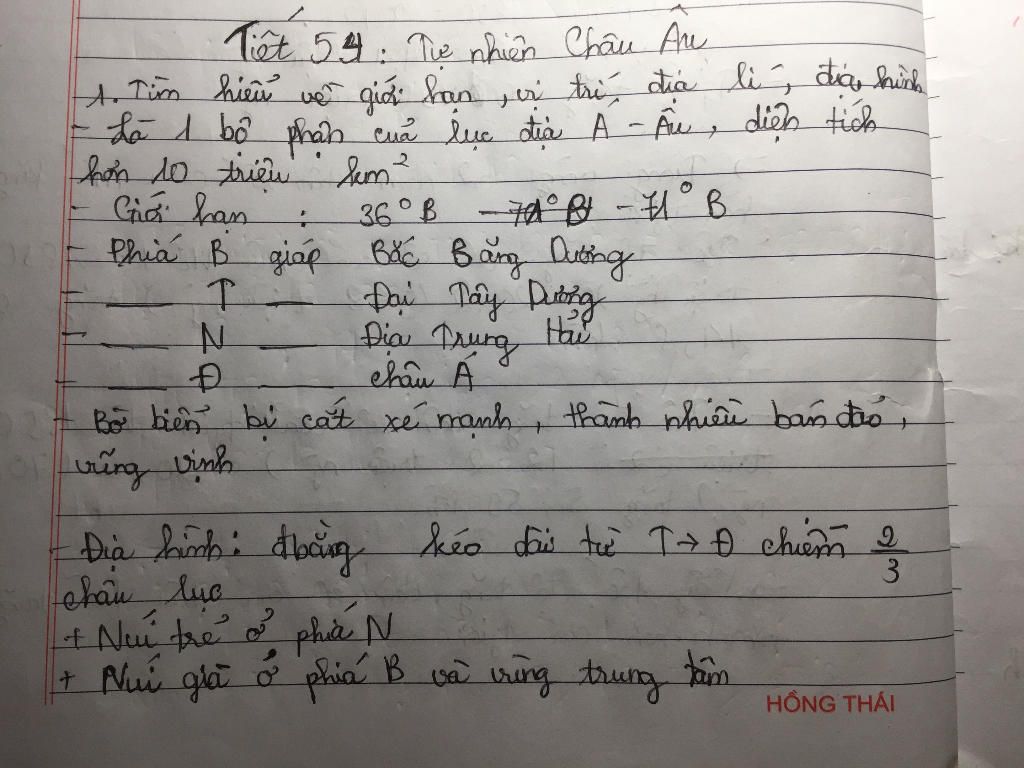 Tiết 54: Tự nhiên Châu Âu
1. Tìm hiểu về giới hạn, vị trí địa lí, địa hình
- Là 1 bộ phận của lục địa Á - Âu, diện tích
hơn 10 triệu km²
- Giới hạn : 36°B - 71° B
- Phía B giáp Bắc Băng Dương
- — T — Đại Tây Dương
- — N — Địa Trung Hải
- — Đ — châu Á
- Bờ biển bị cắt xẻ mạnh, thành nhiều bán đảo,
vũng vịnh
- Địa hình: đbằng kéo dài từ T→Đ chiếm 2/3
châu lục
+ Núi trẻ ở phía N
+ Núi già ở phía B và vùng trung tâm
HỒNG THÁI